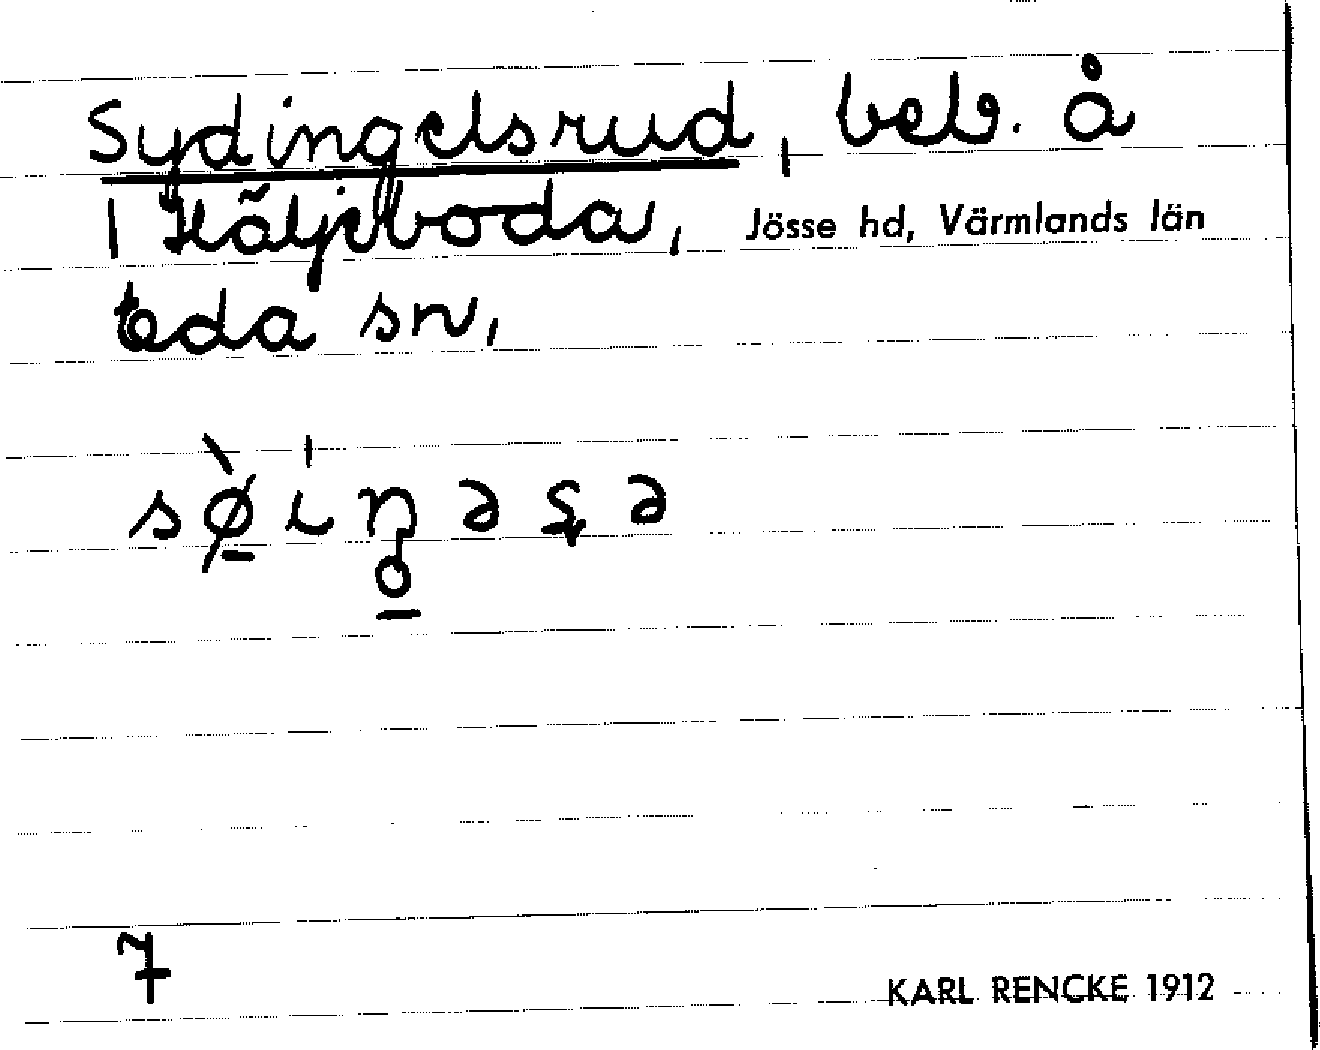 Sydingelsrud, beb. å
1 Häljeboda, Jösse hd, Värmlands län
Eda sn,
7
KARL RENCKE 1912